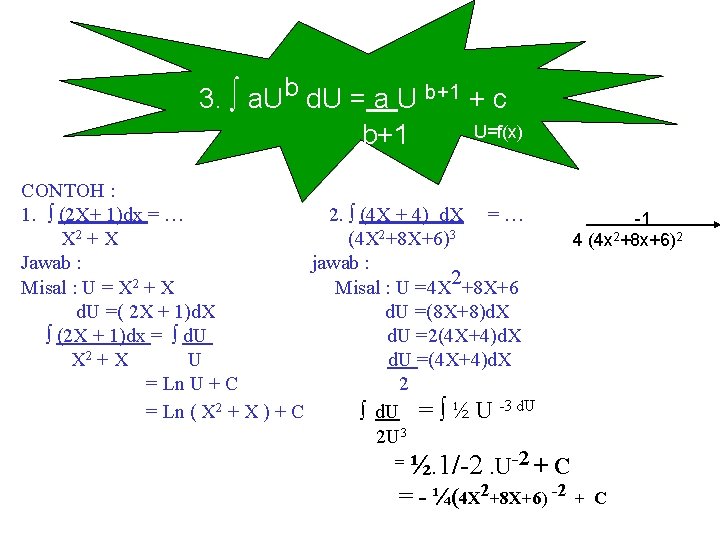 3. ∫ aUb dU = a U b+1 + c
b+1 U=f(x)
CONTOH :
1. ∫ (2X+ 1)dx = …
X2 + X
Jawab :
Misal : U = X2 + X
dU =( 2X + 1)dX
∫ (2X + 1)dx = ∫ dU
X2 + X U
= Ln U + C
= Ln ( X2 + X ) + C
2. ∫ (4X + 4) dX = …
(4X2+8X+6)3
jawab :
Misal : U =4X2+8X+6
dU =(8X+8)dX
dU =2(4X+4)dX
dU =(4X+4)dX
2
∫ dU = ∫ ½ U -3 dU
2U3
= ½.1/-2 .U-2 + C
= - ¼(4X2+8X+6) -2 + C
-1
4 (4x2+8x+6)2